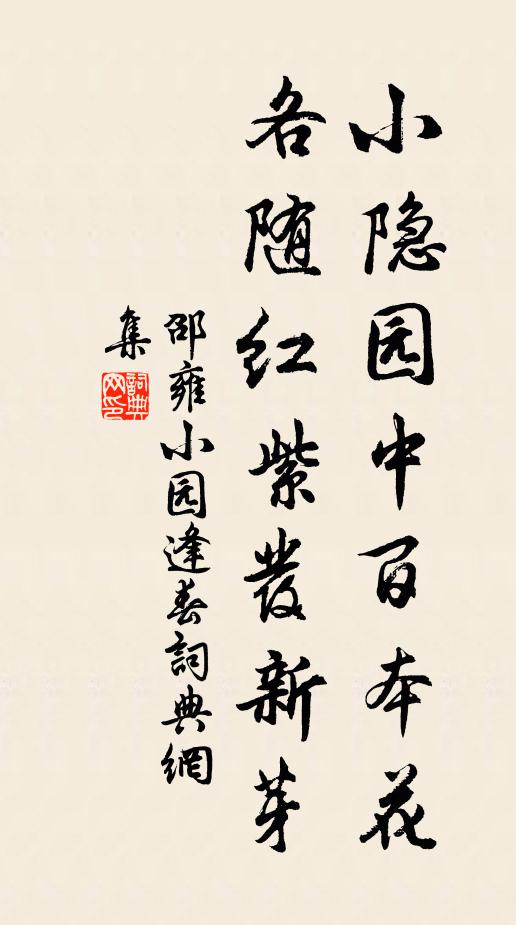 小隐园中百本花
各随红紫發新芽
邵雍小园逢春詞典網
集
詞典网印